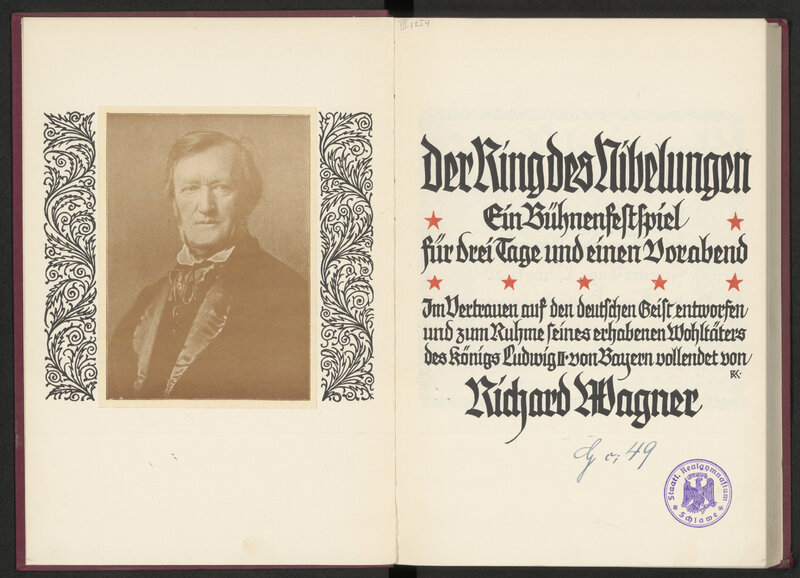 III 1254
der Ring des Nibelungen
Ein Bühnenfestspiel
für drei Tage und einen Vorabend
Im Vertrauen auf den deutschen Geist entworfen
und zum Ruhme seines erhabenen Wohltäters
des Königs Ludwig II. von Bayern vollendet von
RK
Richard Wagner
49
Staatl. Realgymnasium
Schlawe